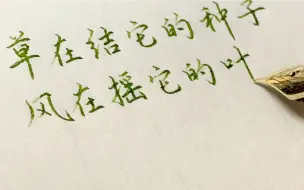 草在结它的种子
风在摇它的叶